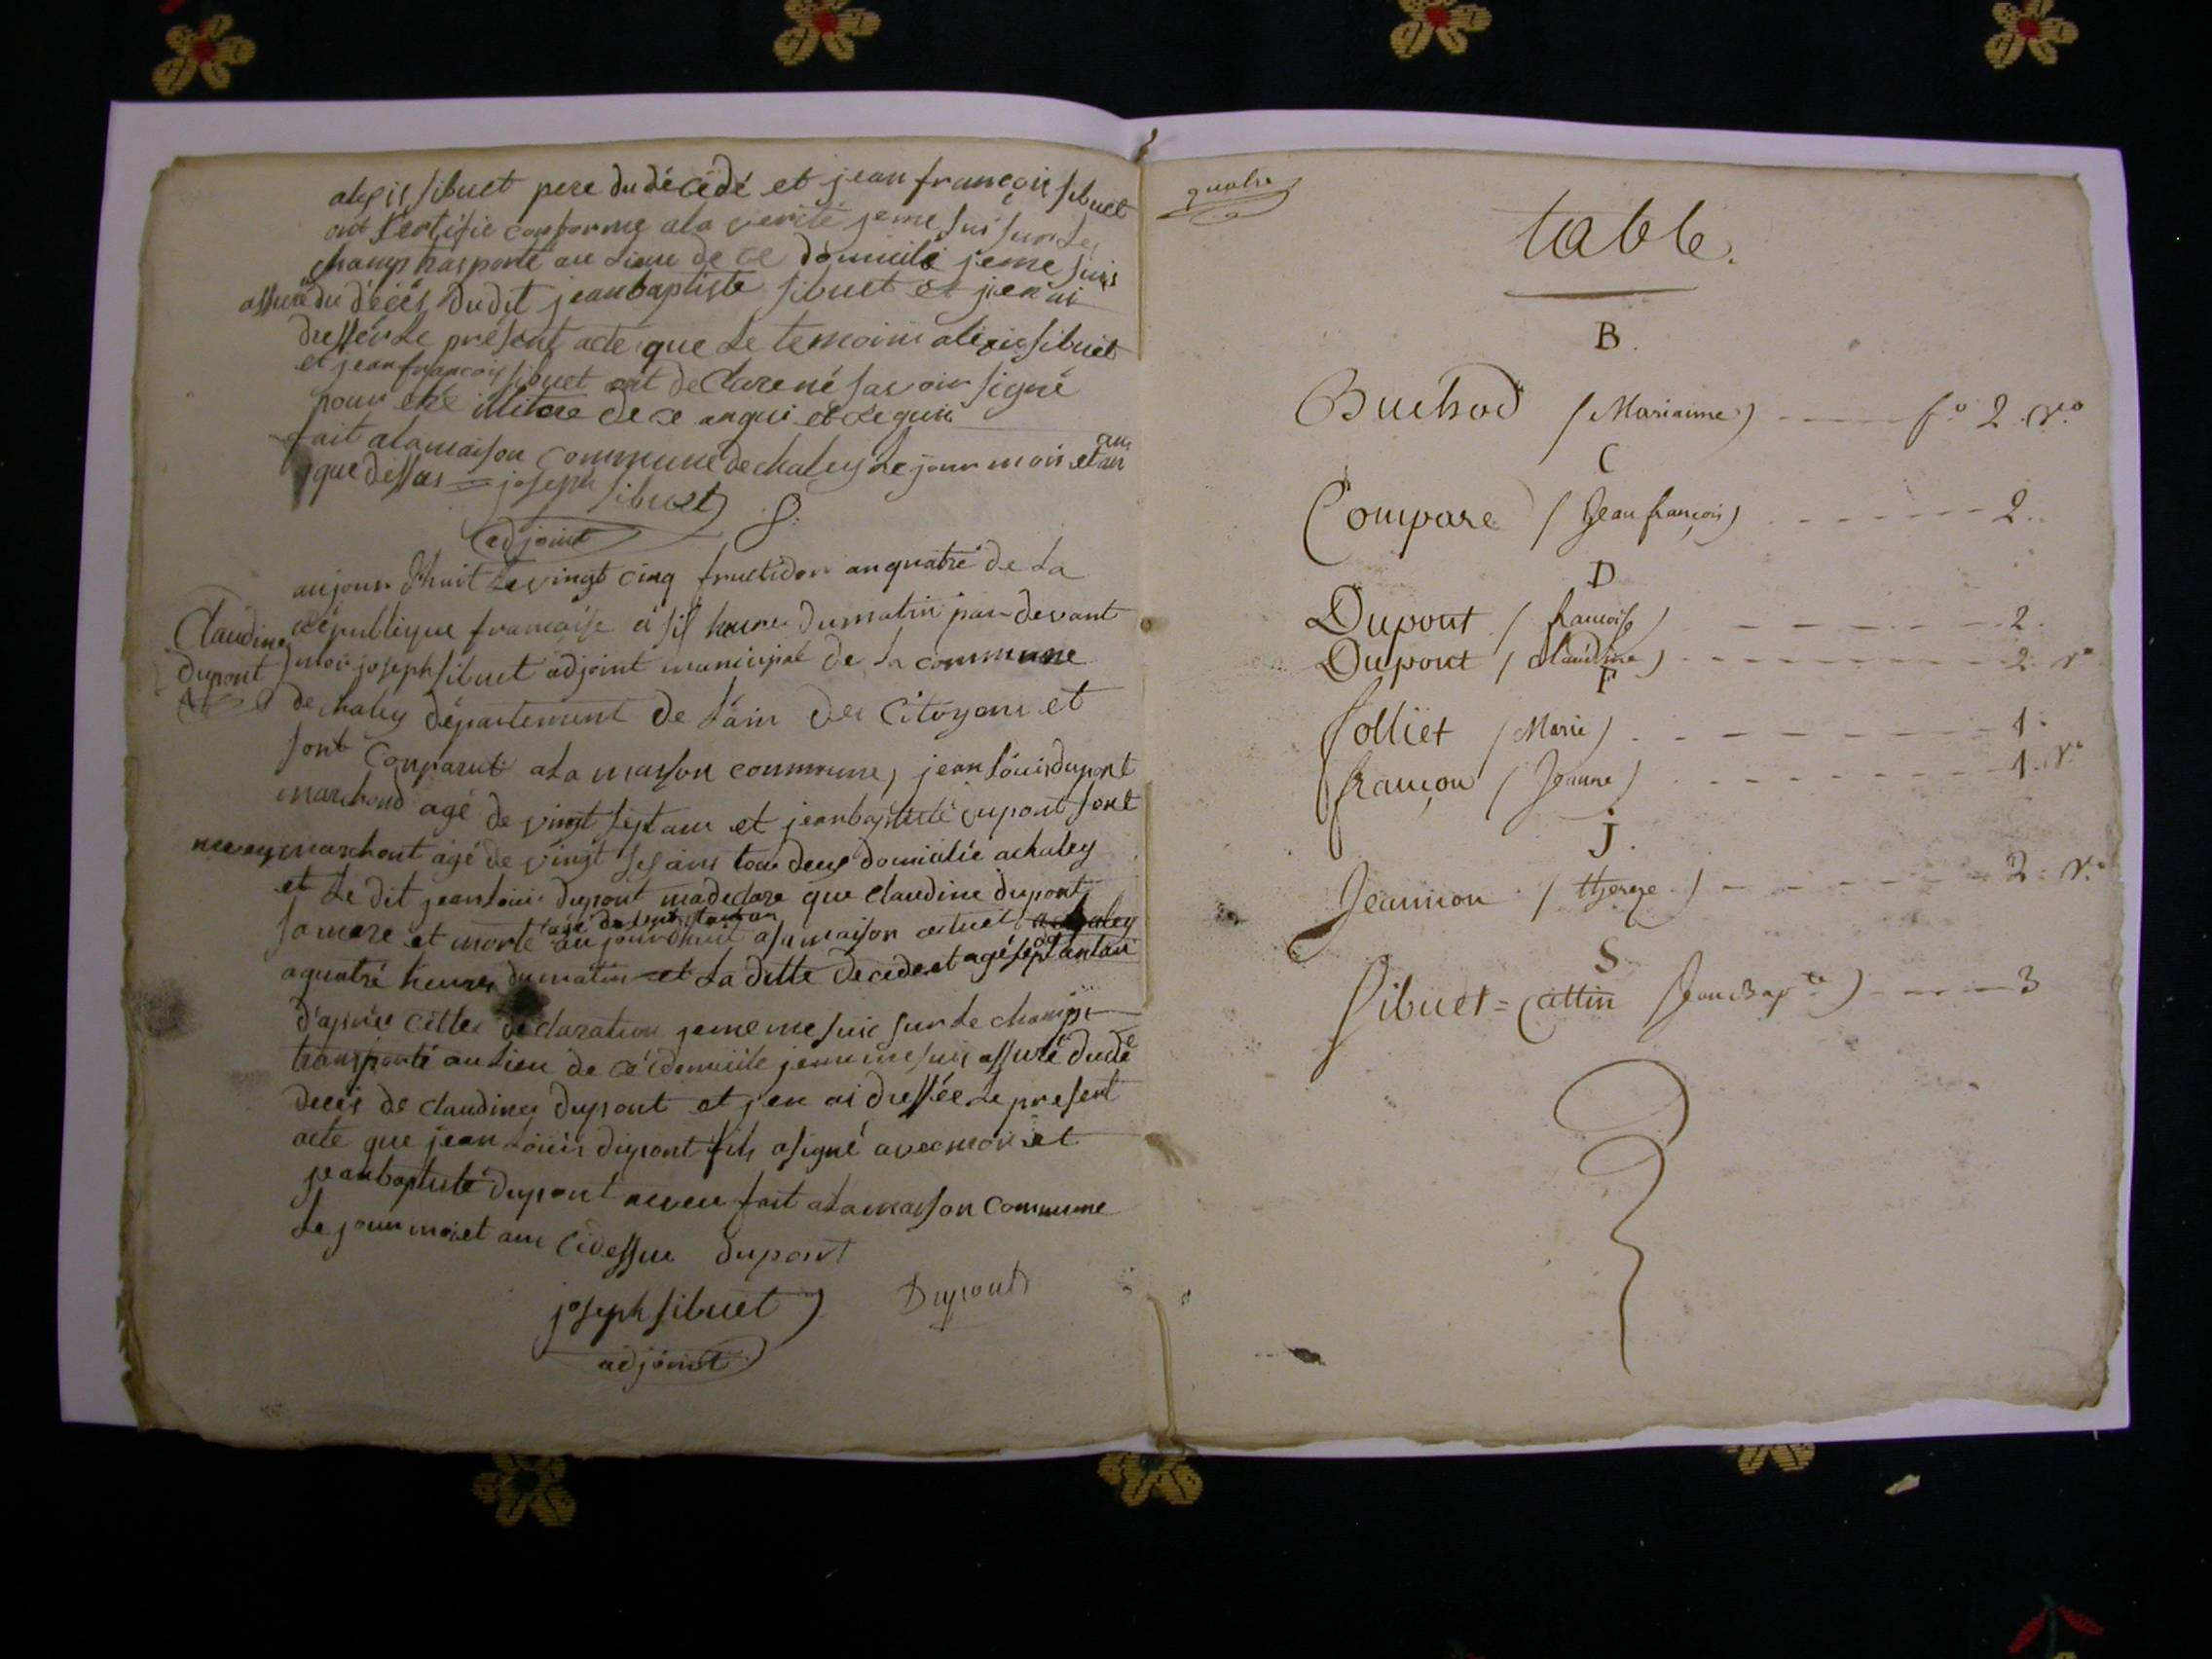 alexis sibuet pere du décédé et jean françois sibuet
ont certifie conforme a la verité je me sui sur le
champ trasporté au lieu de ce domicilé je me suis
assuré du décés dudit jean baptiste sibuet et j'en ai
dresser le présent acte que le temoins alexis sibuet
et jean françois sibuet ont declare né savoir signé
pour etré de ce
fait a la maison commune de chaley le jour mois et an
que dessus = joseph sibuet
adjoint
aujour d'huit le vingt cinq fructidor an quatré de la
république francaise a sis heure du matin par devant
Claudine
dupont
moi joseph sibuet adjoint municipal de la commune
de chaley département de l'ain des citoyens et
sont comparut a la maison commune, jean louis dupont
marchand agé de vingt sept ans et jean baptiste dupont sont
neveu marchant agé de vingt ses ans tou deux domicilié a chaley
et le dit jean louis dupont ma declare que claudine dupont
sa mere et morte aujourdhuit a sa maison
a quatré heures du matin et la ditte decedee et agé septantan
d'aprés cette declaration je me me suis sur le champs
transporté au lieu de ce domicile je me me suis assuré dude
decés de claudine dupont et j'en ai dressée le present
acte que jean louis dupont fils a signé avec moi et
jean baptiste dupont neveu fait a la maison commune
le jour moi et an ci dessus dupont
joseph sibuet Dupont
adjoint
quatre
table.
B.
Buchod (Marianne) ---- f° 2. v°.
C
Compare (Jean françois) ------ 2.
D
Dupont (francoise) ------ 2.
Dupont (claudine) ------ 2. v°
F
folliet (Marie) ------ 1.
françon (Jeanne) ------ 1. v°
J.
Jeannion (thereze) ------ 2. v°
S
Sibuet = Cattin (Jean Bap.te) ---- 3